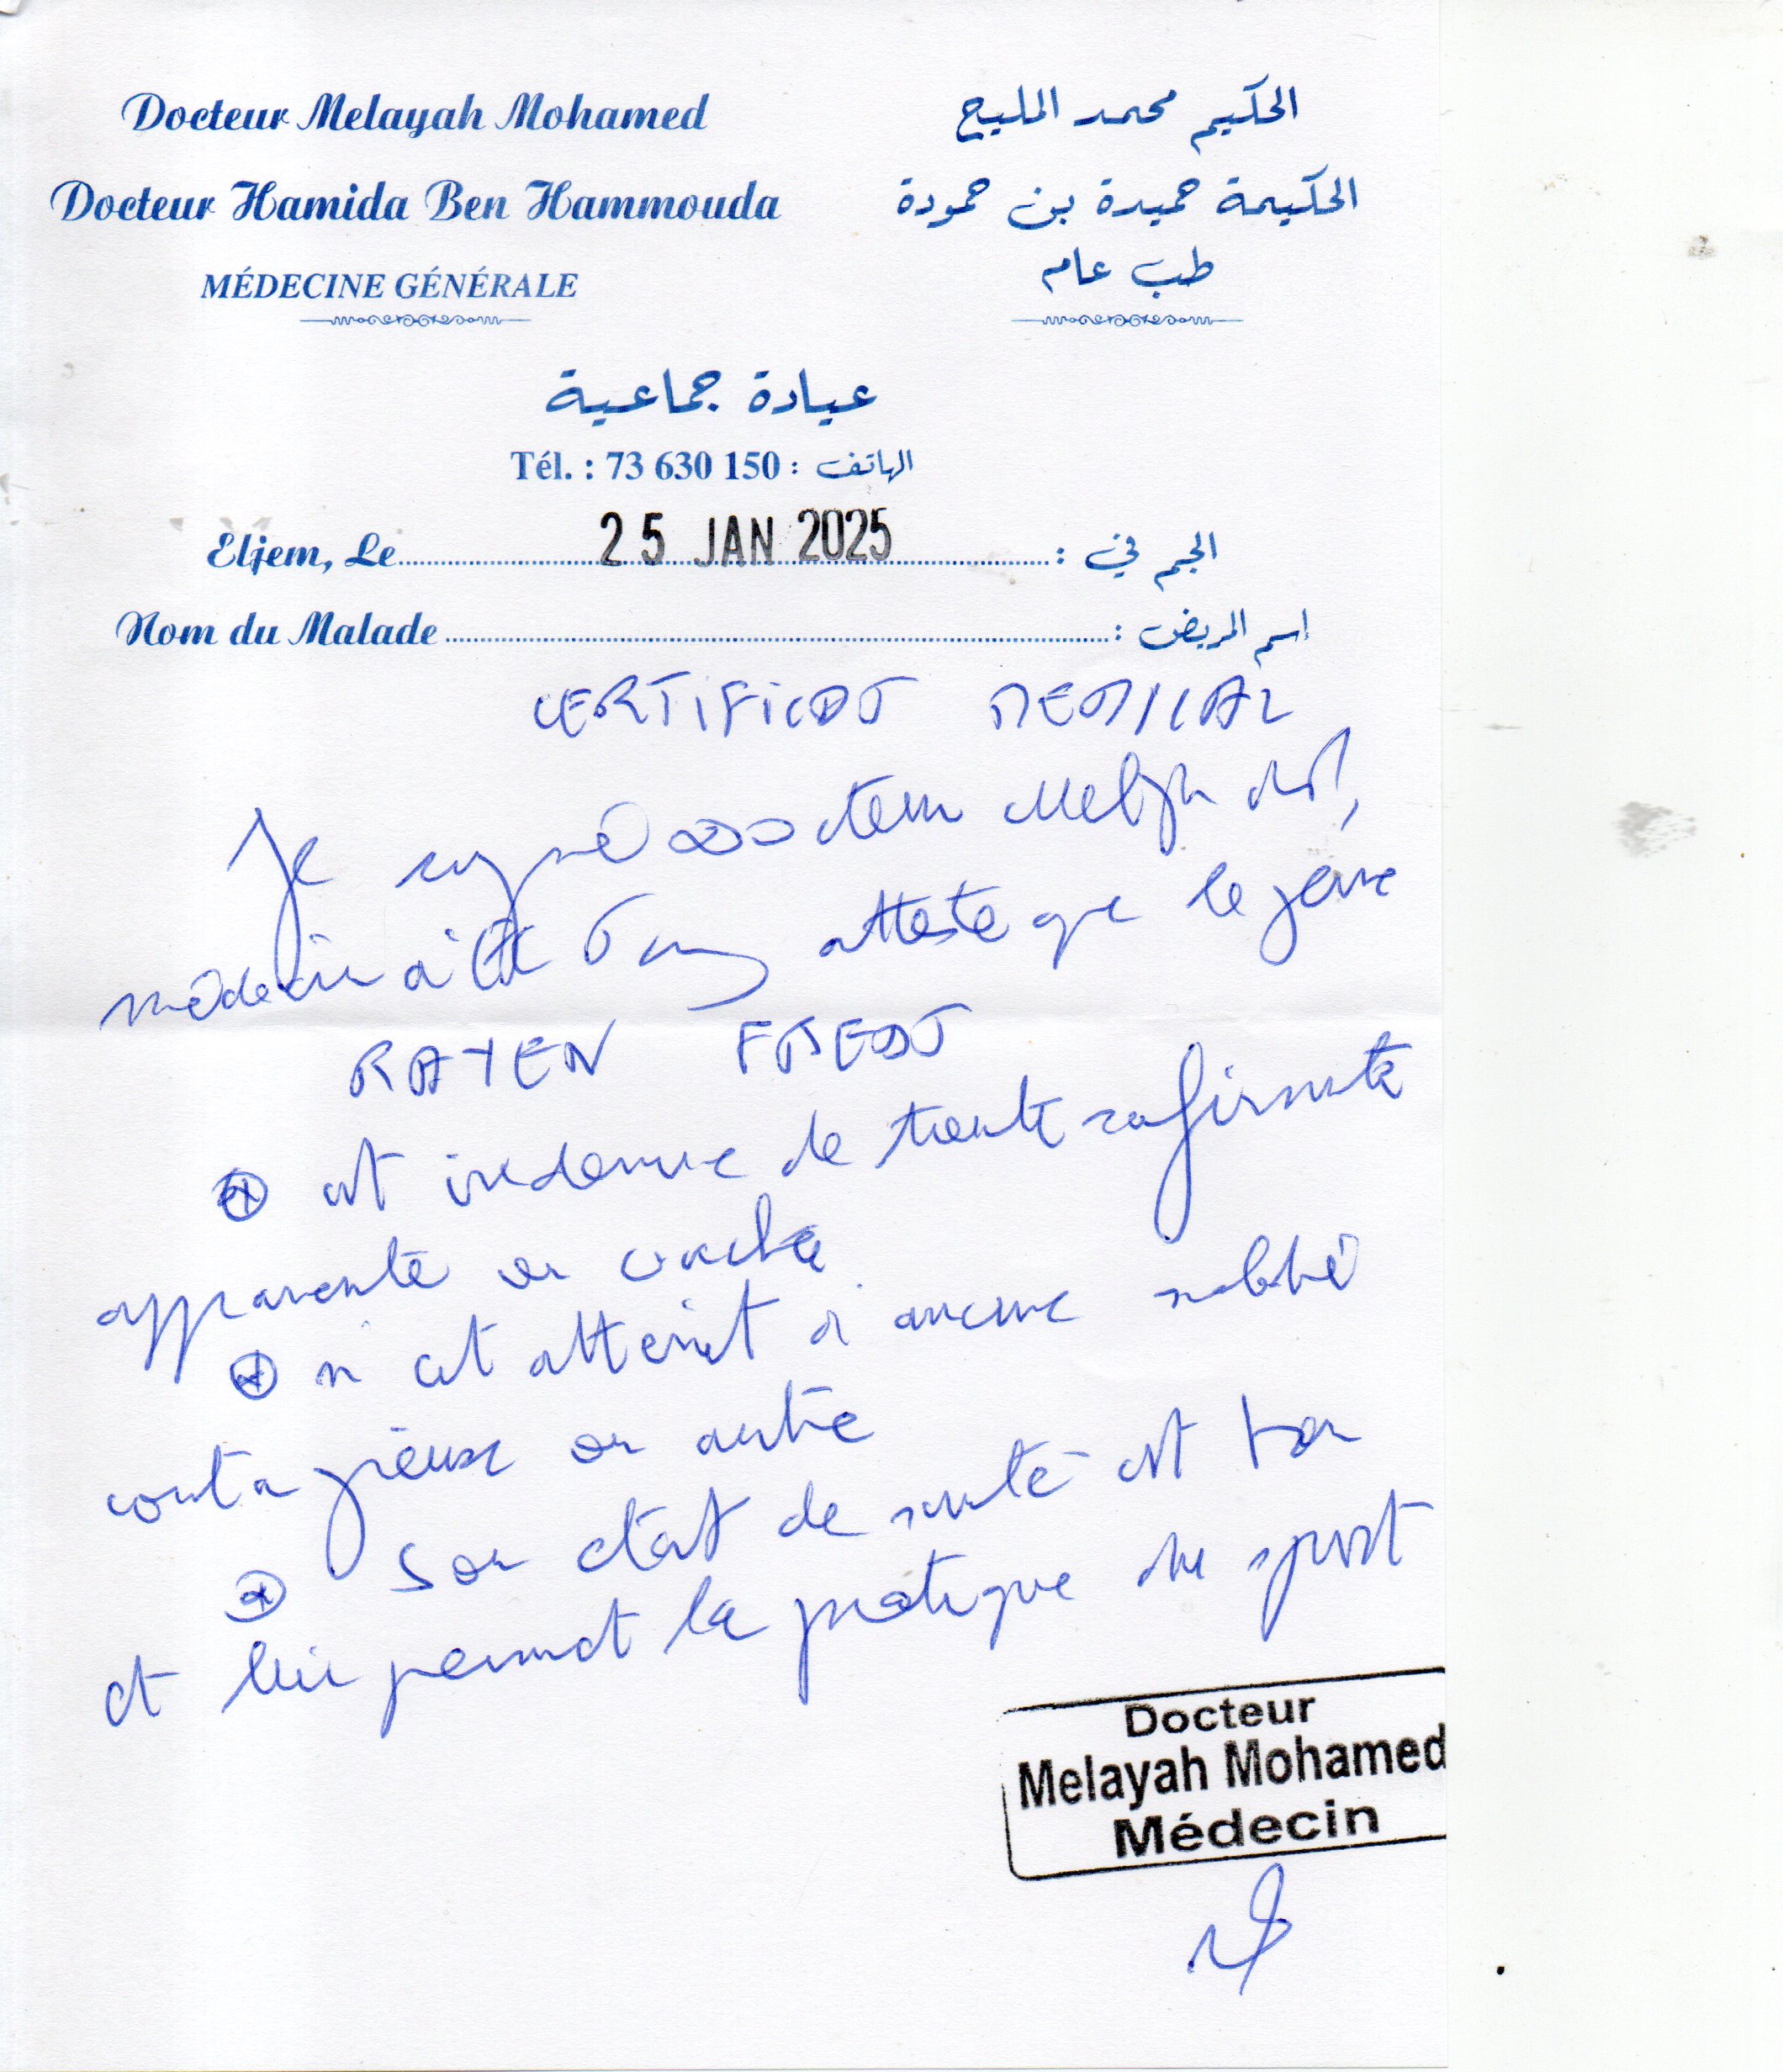 Docteur Melayah Mohamed
الحكيم محمد المليح
Docteur Hamida Ben Hammouda
الحكيمة حميدة بن حمودة
MÉDECINE GÉNÉRALE
طب عام
عيادة جماعية
Tél. : 73 630 150 : الهاتف
Eljem, Le 25 JAN 2025 : الجم في
Nom du Malade : اسم المريض
CERTIFICAT MEDICAL
Je signé Docteur Melayah Md,
médecin à atteste que le jeune
RAYEN
est indemne de toute infirmité
apparente ou cachée
n'est atteint d'aucune maladie
contagieuse ou autre
Son état de santé est bon
et lui permet la pratique du sport
Docteur
Melayah Mohamed
Médecin